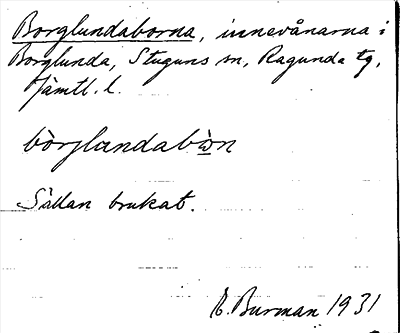 Borglundaborna, innevånarna i
Borglunda, Stuguns sn, Ragunda tg,
Jämtl. l.
bòrjlandabòn
Sällan brukat.
E. Burman 1931